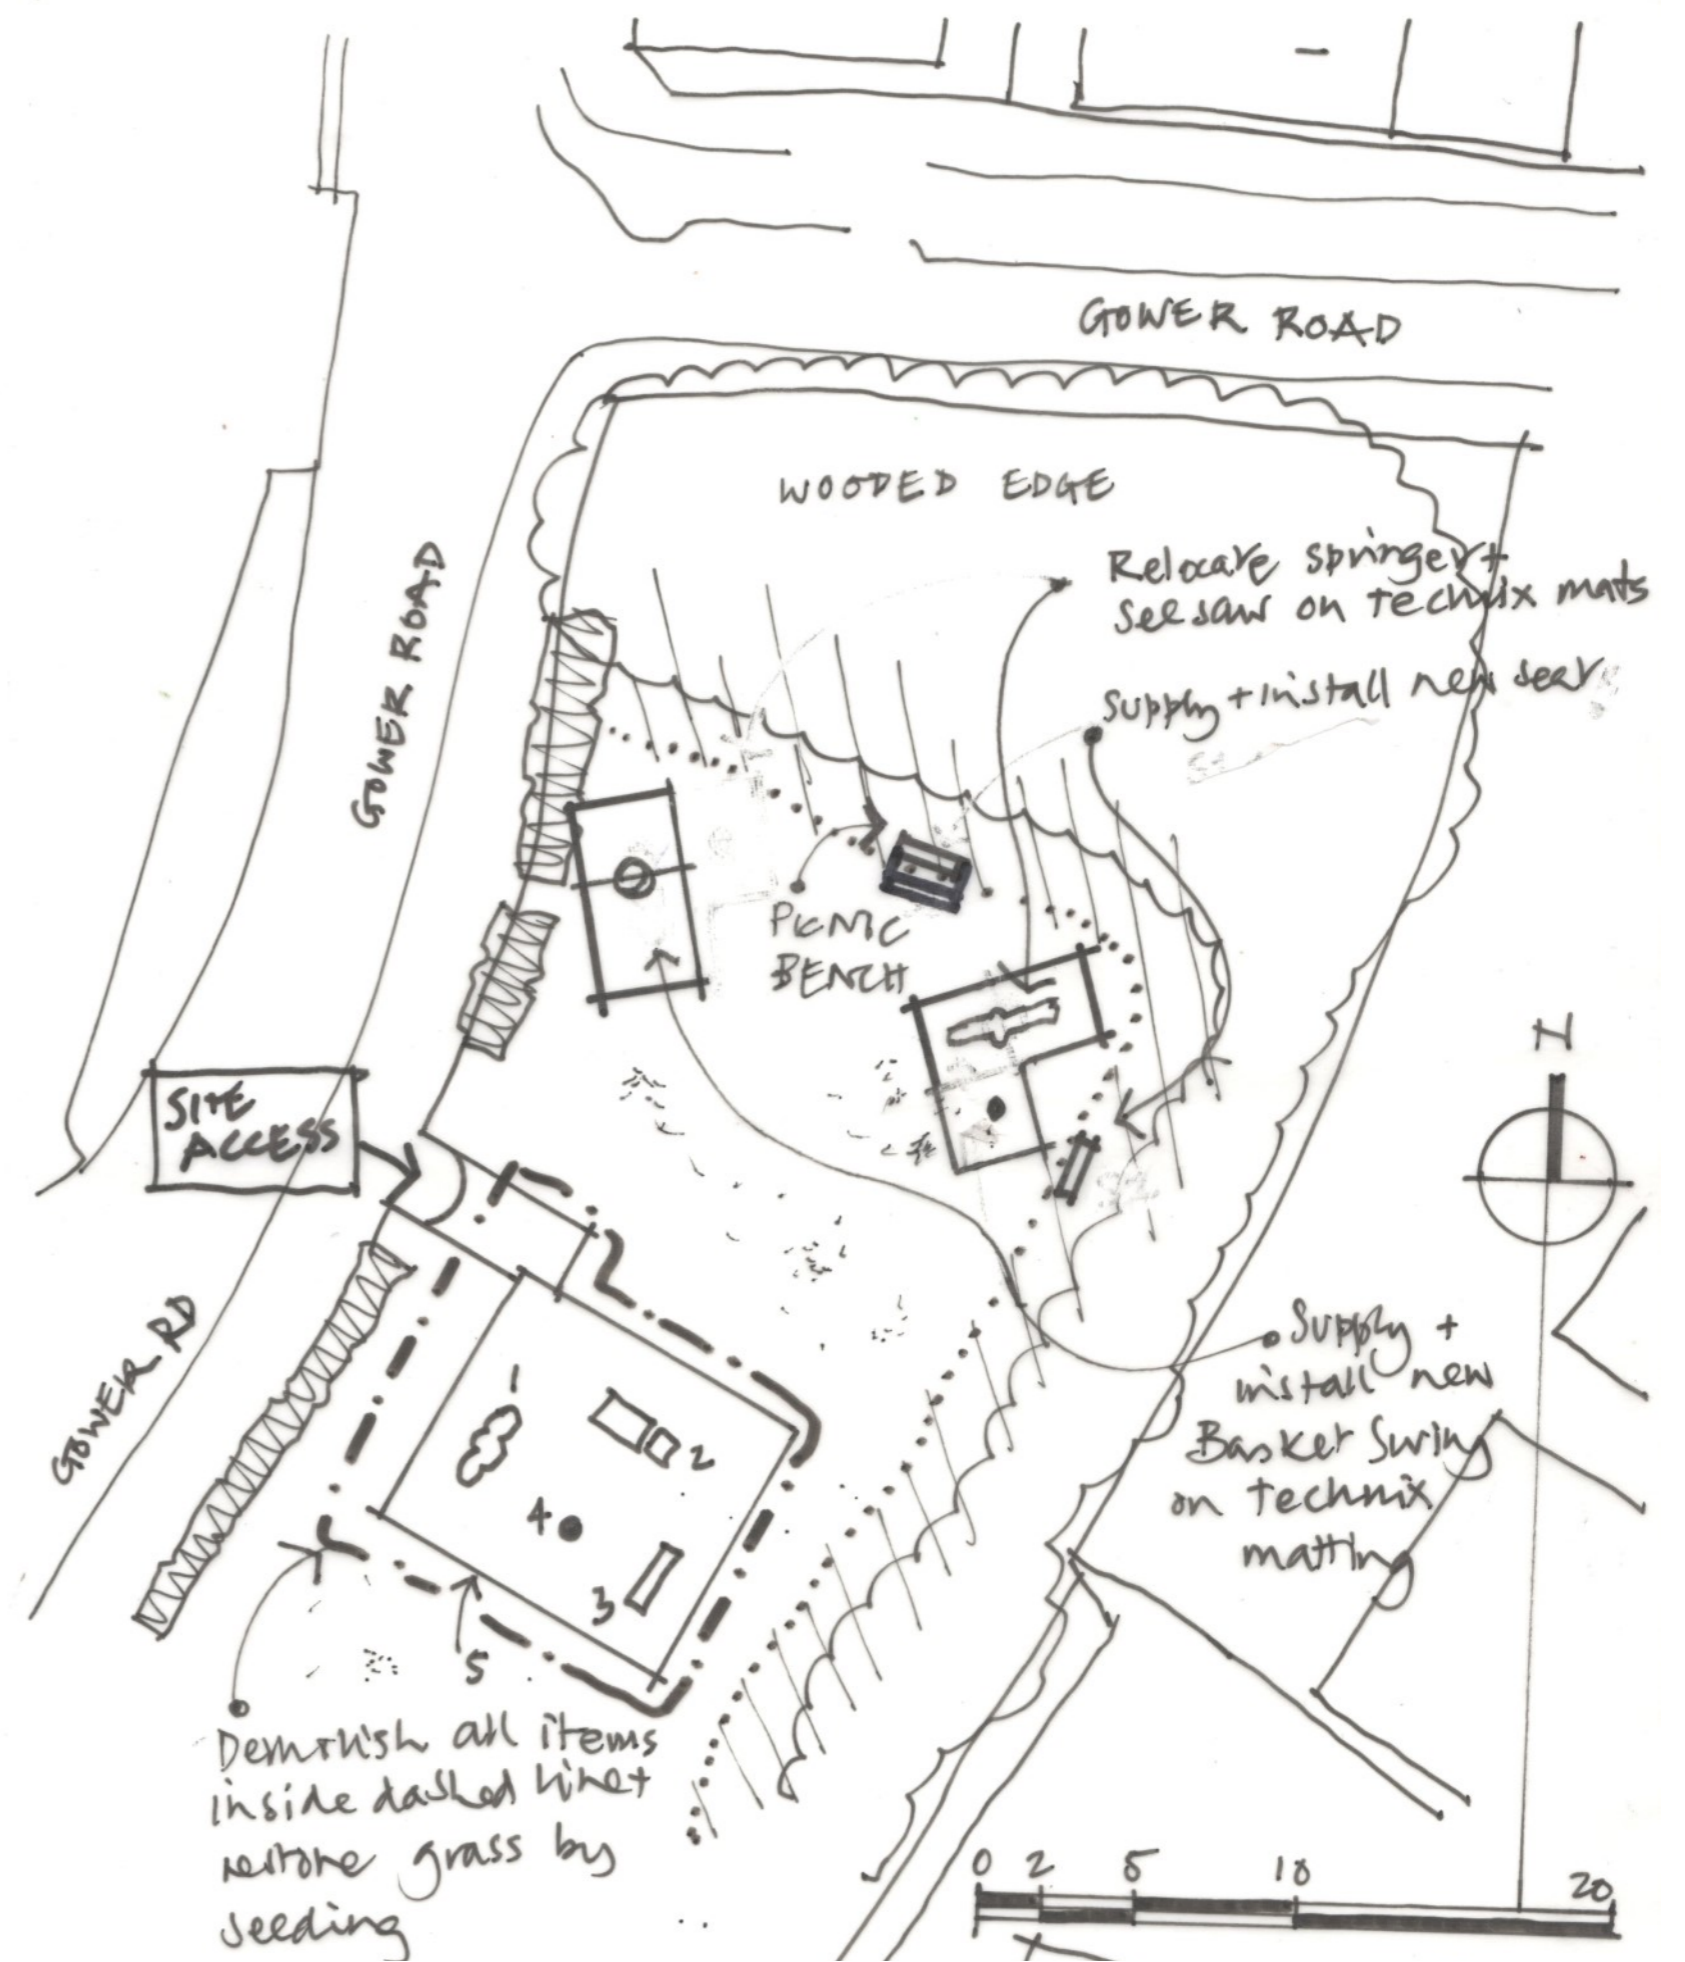 GOWER ROAD
WOODED EDGE
Relocate springer +
seesaw on technix mats
Supply + install new seat
GOWER ROAD
PICNIC
BENCH
N
SITE
ACCESS
Supply +
install new
Basket Swing
on technix
matting
GOWER RD
1
2
4
3
5
Demolish all items
inside dashed line +
restore grass by
seeding
0 2 5 10 20